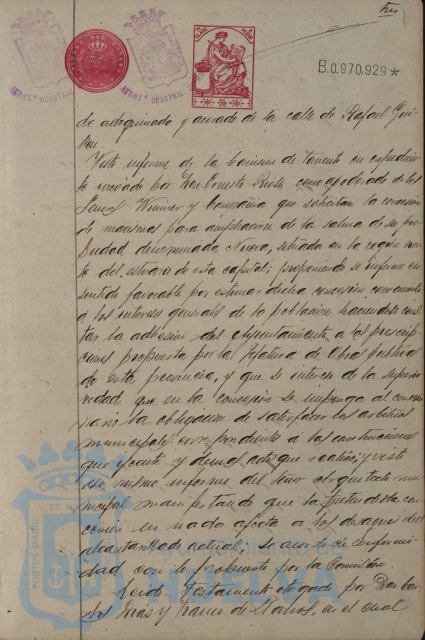 tres
AYUNT.º CONSTNAL
AYUNT.º CONSTNAL
B.0,970,929*
de adoquinado y acerado de la calle de Rafael Gui-
llen.
Visto informe de la Comision de Fomento en expedien-
te incoado por Don Ernesto como apoderado de los
Señores y Compañia que solicitan la concesion
de marismas para ampliacion de la salina de su pro-
piedad denominada Nueva, situada en la region
del estero de esta capital; proponiendo se informe en
sentido favorable por estimar dicha concesion conveniente
á los intereses generales de la poblacion, haciendo cons-
tar la adhesion del Ayuntamiento á las prescrip-
ciones propuestas por la Jefatura de Obras publicas
de esta provincia, y que se interese de la superio-
ridad que en la concesion se imponga al concesio-
nario la obligacion de satisfacer los arbitrios
municipales correspondientes á las construcciones
que ejecute y demas actos que realice; y visto
asi mismo informe del Señor Arquitecto mu-
nicipal manifestando que la pretendida con-
cesion en nada afecta á los desagües del
alcantarillado actual; se acordó de conformi-
dad con lo propuesto por la Comision.
Leido testamento otorgado por Don Car-
los Diaz y Franco de Llanos, en el cual
HUELVA